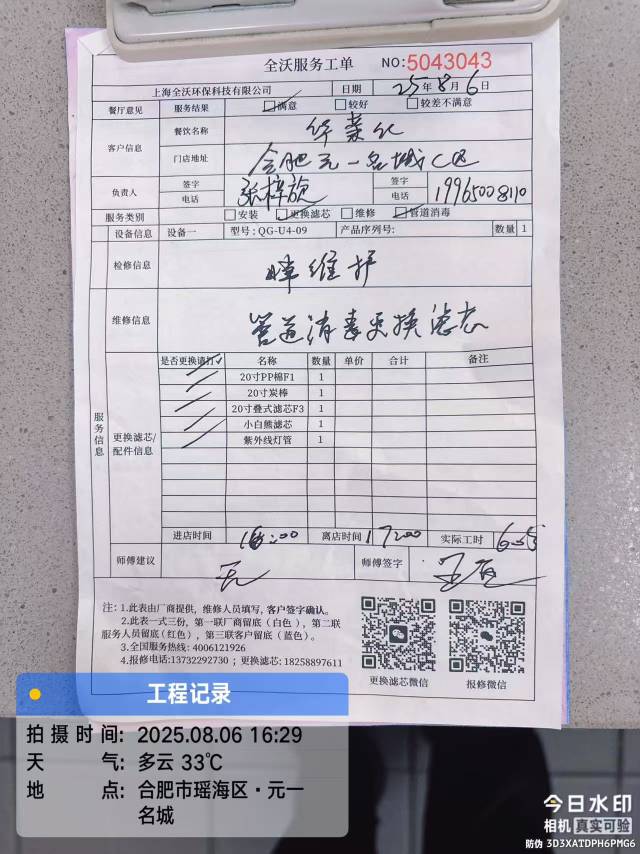 全沃服务工单 NO:5043043
上海全沃环保科技有限公司 日期 25年8月6日
餐厅意见 服务结果 满意 较好 较差不满意
客户信息 餐饮名称 华莱仕
门店地址 合肥元一名城C区
负责人 签字 电话 张梓旋 签字 电话 19965008110
服务类别 安装 更换滤芯 维修 管道消毒
设备信息 设备一 型号:QG-U4-09 产品序列号: 数量 1
检修信息 维护
维修信息 管道消毒更换滤芯
服务信息
更换滤芯/配件信息
是否更换请打✓ 名称 数量 单价 合计 备注
20寸PP棉F1 1
20寸炭棒 1
20寸叠式滤芯F3 1
小白熊滤芯 1
紫外线灯管 1
进店时间 16:00 离店时间 17:00 实际工时
师傅建议 无 师傅签字
注:1.此表由厂商提供,维修人员填写,客户签字确认。
2.此表一式三份,第一联厂商留底(白色),第二联
服务人员留底(红色),第三联客户留底(蓝色)。
3.全国服务热线:4006121926
4.报修电话:13732292730;更换滤芯:18258897611
更换滤芯微信 报修微信
工程记录
拍摄时间:2025.08.06 16:29
天气:多云 33℃
地点:合肥市瑶海区·元一
名城
今日水印
相机 真实可验
防伪 3D3XATDPH6PMG6